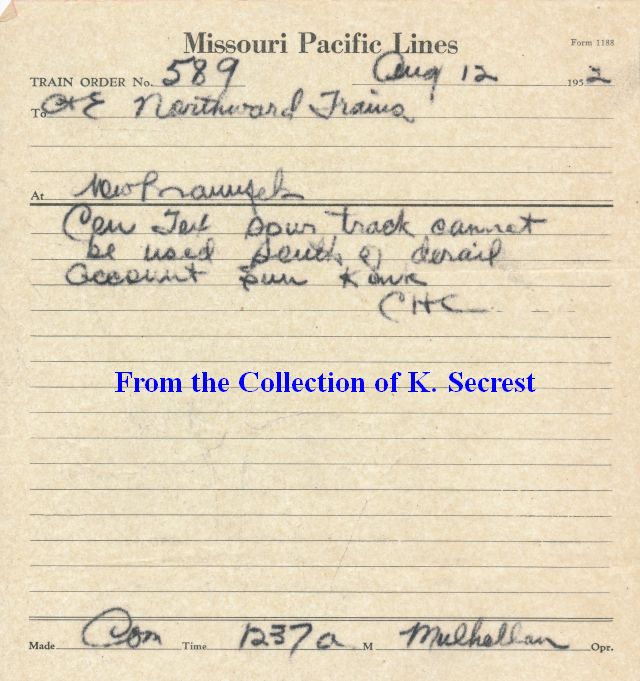 Missouri Pacific Lines
Form 1188
TRAIN ORDER No. 589 Aug 12 1952
To C&E Northward Trains
At New Braunfels
Cen Tex spur track cannot
be used south of derail
account sun kink
CHC
From the Collection of K. Secrest
Made Com Time 1237a M Mulhollan Opr.